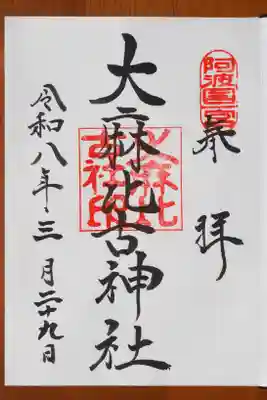 阿波國一宮
奉拝
大麻比古神社
大麻比
古社印
令和八年三月二十九日